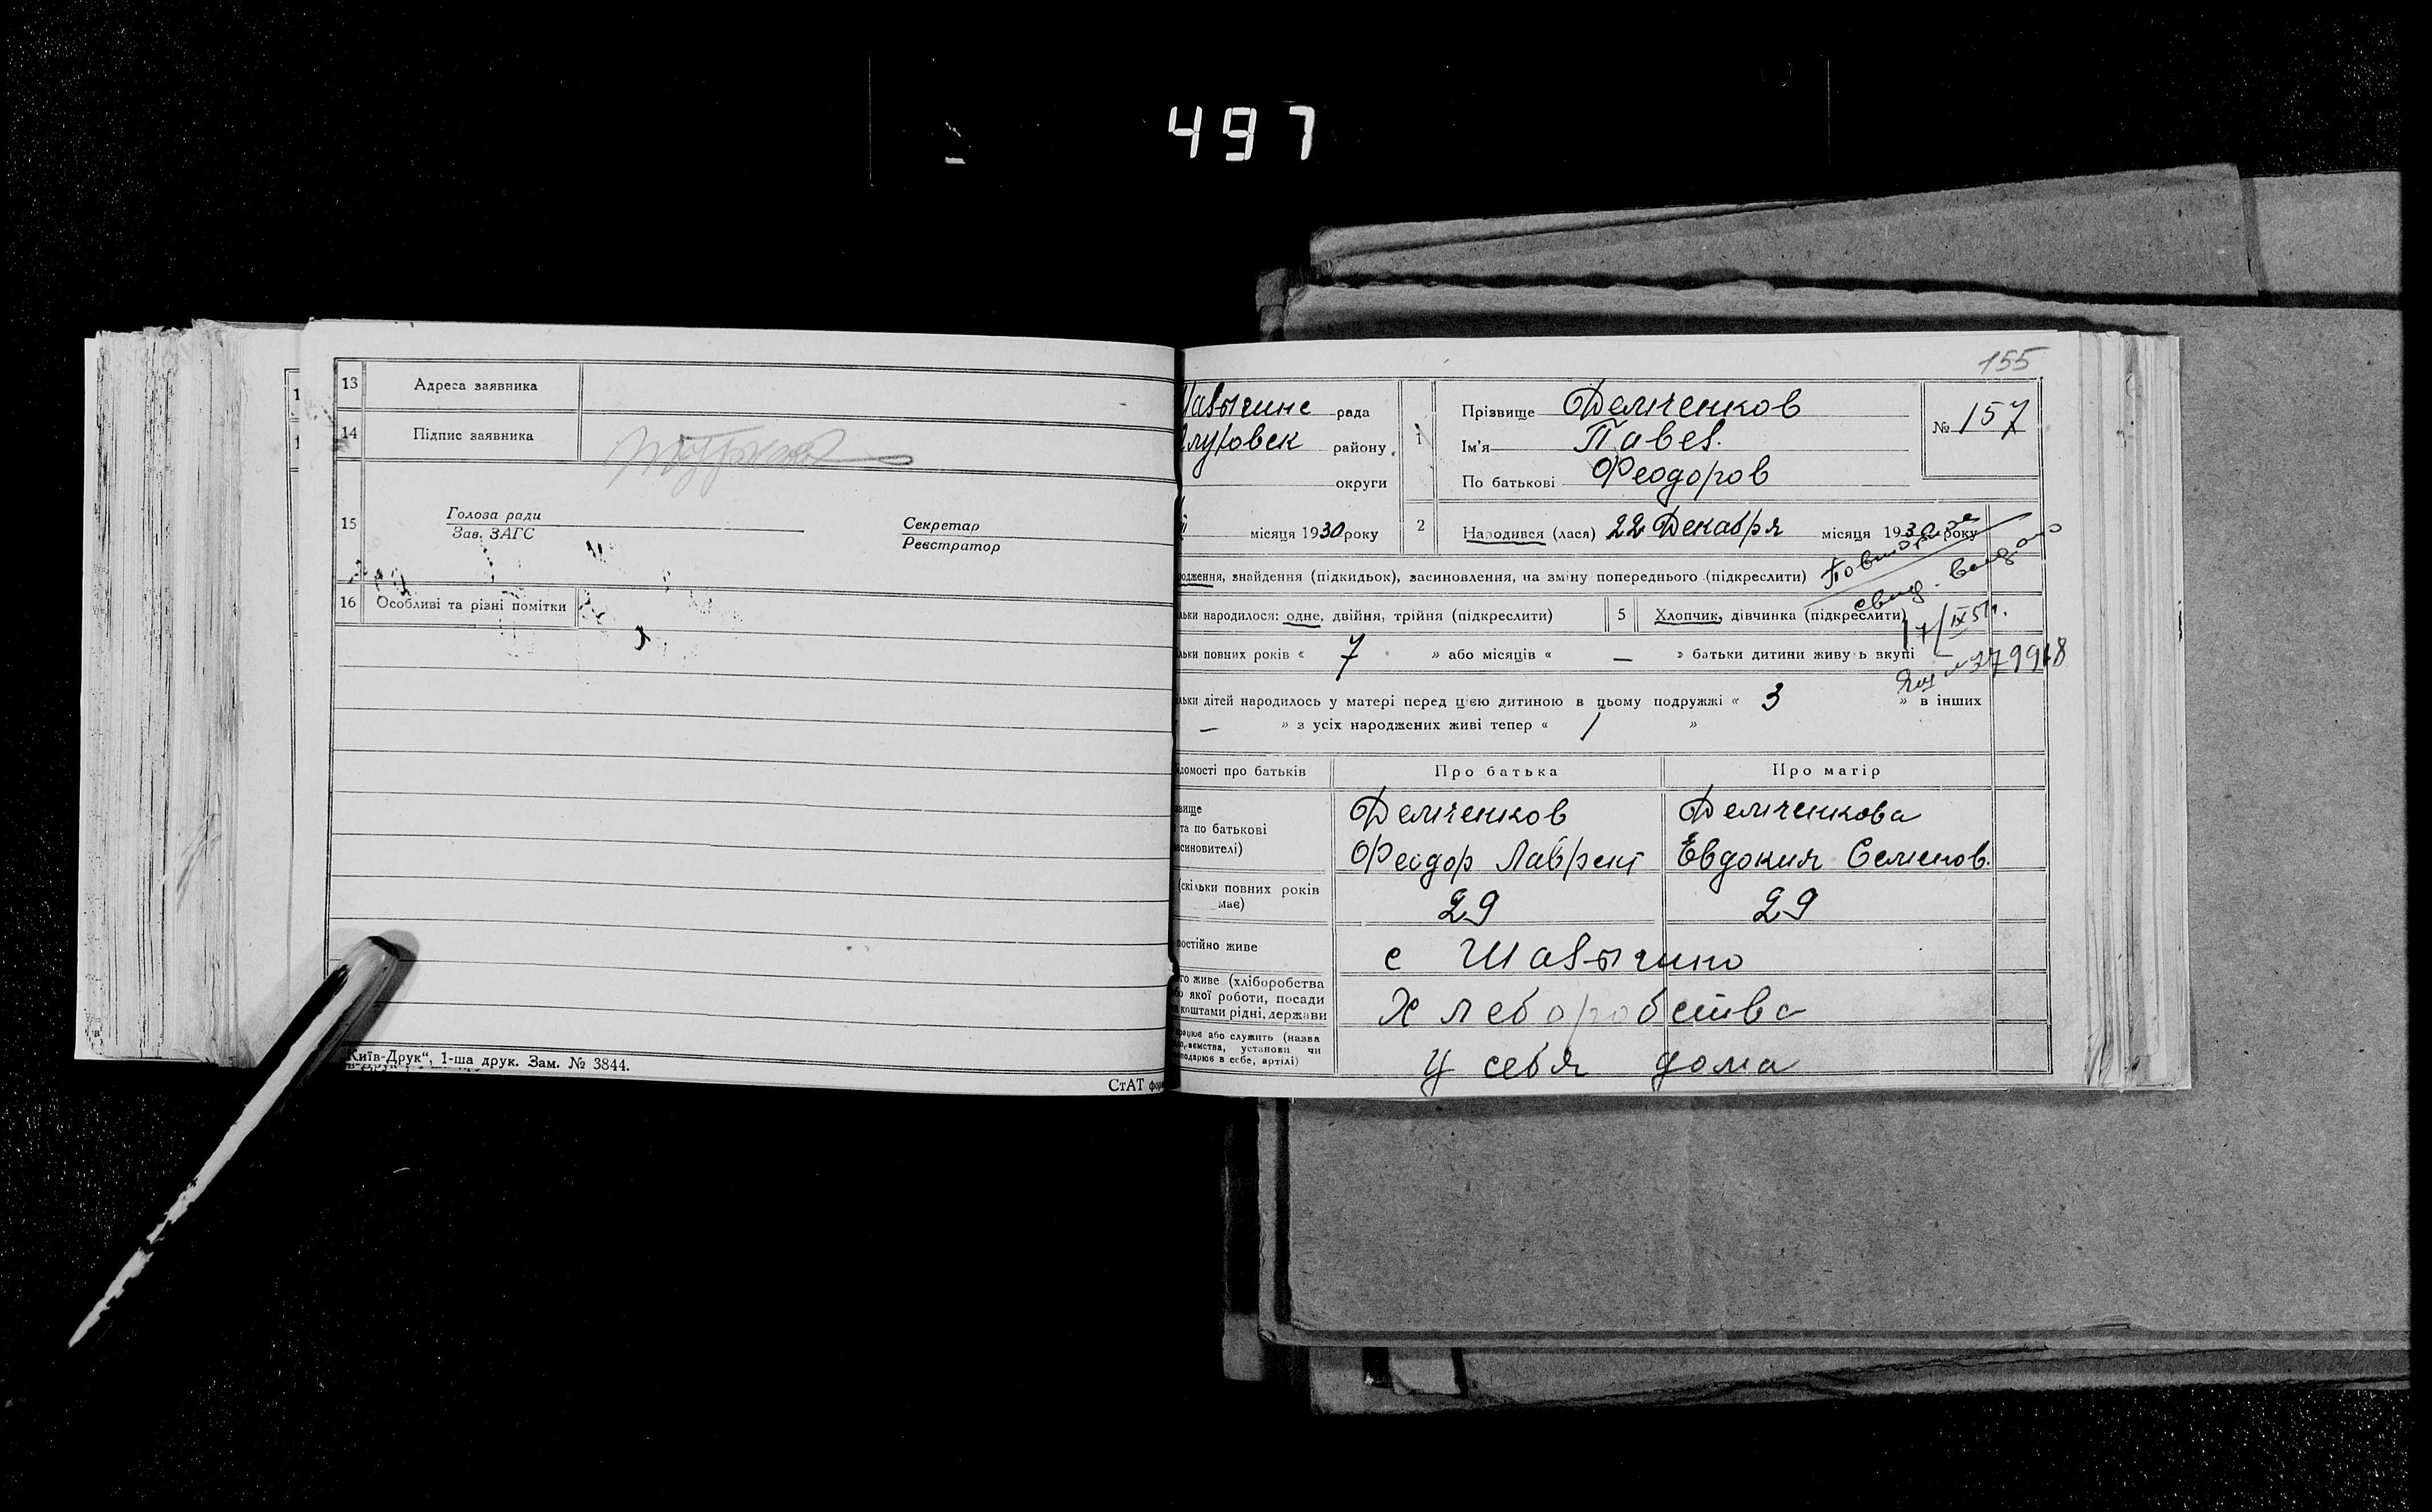 497
13 Адреса заявника
14 Підпис заявника
15 Голова ради
Зав. ЗАГС
Секретар
Реєстратор
16 Особливі та різні помітки
Київ-Друк“, 1-ша друк. Зам. № 3844.
СтАТ
155
рада
району
округи
місяця 1930 року
1 Прізвище Демченков
Ім'я Павел.
По батькові Феодоров
№ 157
2 Народився (лася) 22 Декабря місяця 1930 року
Повторное
свид. выдано
7/IX 51 г.
379918
знайдення (підкидьок), засиновлення, на зміну попереднього (підкреслити)
народилося: одне, двійня, трійня (підкреслити)
5 Хлопчик, дівчинка (підкреслити)
повних років « 7 » або місяців « — » батьки дитини живуть вкупі
дітей народилось у матері перед цією дитиною в цьому подружжі « 3 » в інших
— » з усіх народжених живі тепер « 1 »
про батьків
Про батька
Про матір
та по батькові
Демченков
Феодор Лаврент
Демченкова
Евдокия Семенов.
(скільки повних років
має)
29
29
постійно живе
с Шавычино
живе (хліборобства
якої роботи, посади
коштами рідні, держави
Хлеборобства
або служить (назва
установи чи
в себе, артілі)
У себя дома